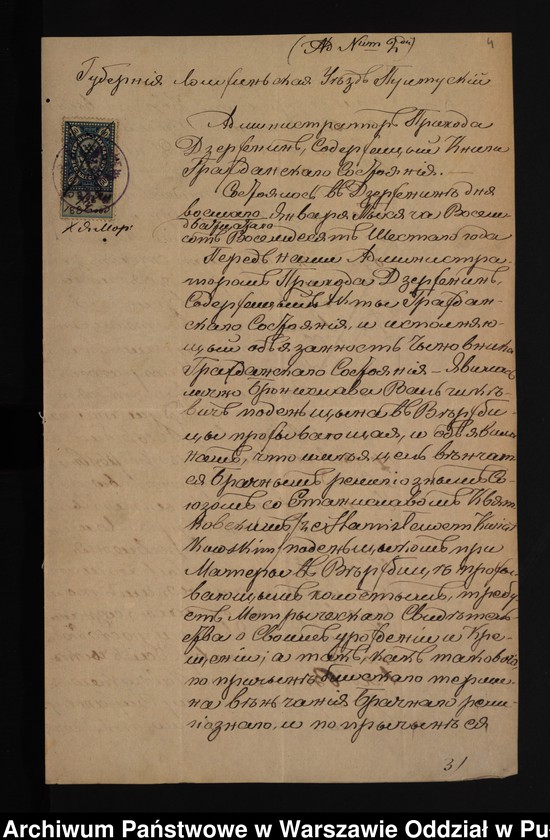 (Ad Num 2 dum)
4
Губернія Ломжинская Уѣздъ Пултускій
Администраторъ Прихода
Дзерженинъ, Содержащій Книги
Гражданскаго Состоянія.
Состоялось въ Дзерженинѣ дня
восьмаго Января Мѣсяча Восем
двадцатаго
сотъ Восемдесятъ Шестаго года
Передъ нами Администра-
торомъ Прихода Дзерженинъ,
Содержащымъ Акты Граждан-
скаго Состоянія, и исполняю-
щый обязанность Чыновника
Гражданскаго Состоянія — Явилась
лично Брониславa
вичъ поденщына въ Вержби-
цы прожывающая, и объявила
намъ, что имѣя цель вѣнчат
ся Брачнымъ религіознымъ Со-
юзомъ со Станиславомъ Квят
ковскимъ /:c Stanisławem Kwiat
kowskim/ поденщыкомъ при
Матеры въ Вержбицѣ прожы-
вающымъ холостымъ, требу-
етъ Метрыческаго Свидѣтель-
ства о Своемъ урожденіи и Кре-
щеніи; а такъ, какъ таковаго
по причынѣ близкаго терми-
на вѣнчанія Брачнаго рели-
гіознаго, и по прычынѣ ея
31
Archiwum Państwowe w Warszawie Oddział w Pu